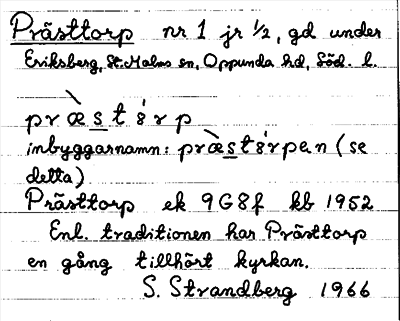 Prästtorp nr 1 jr 1/2, gd under
Eriksberg, St. Malms sn, Oppunda hd, Söd. l.
præ̀st8́rp
inbyggarnamn: præ̀st8́rpan (se
detta)
Prästtorp ek 9G8f kb 1952
Enl. traditionen har Prästtorp
en gång tillhört kyrkan.
S. Strandberg 1966